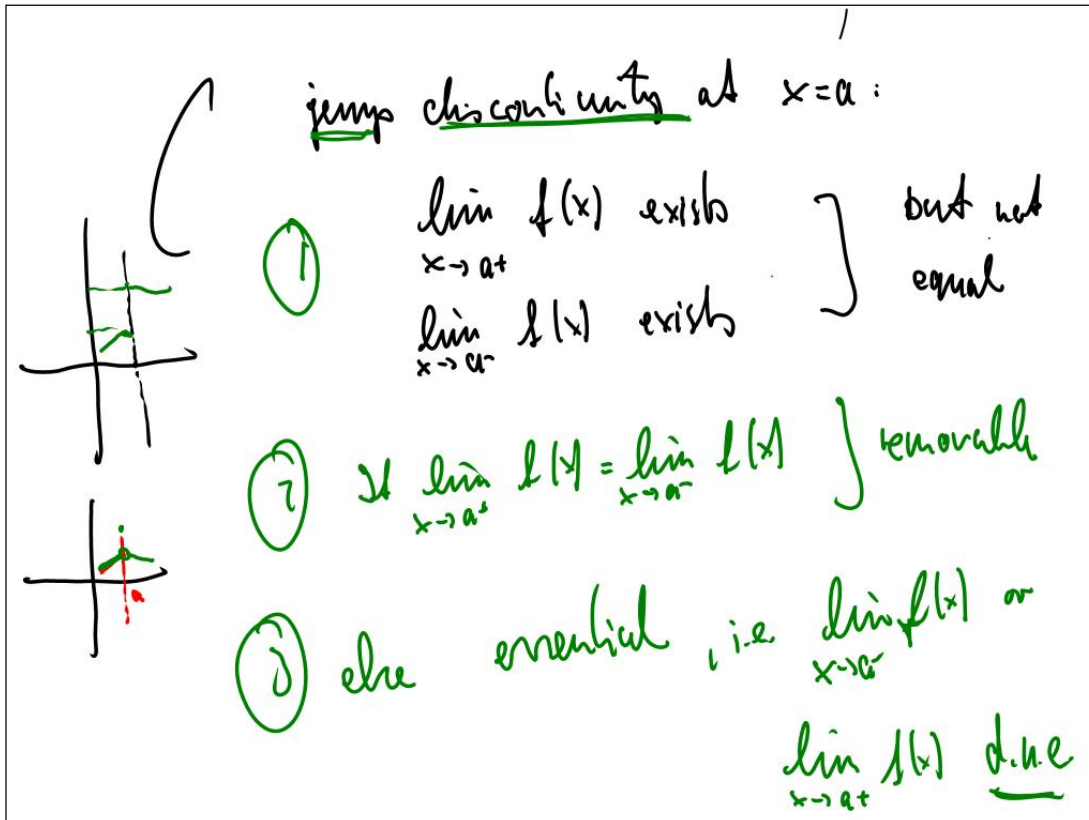 jump discontinuity at x=a:
① lim f(x) exists
x→a+
lim f(x) exists
x→a-
] but not
equal
② If lim f(x) = lim f(x) ] removable
x→a+ x→a-
a
③ else essential, i.e. lim f(x) or
x→a-
lim f(x) d.n.e
x→a+